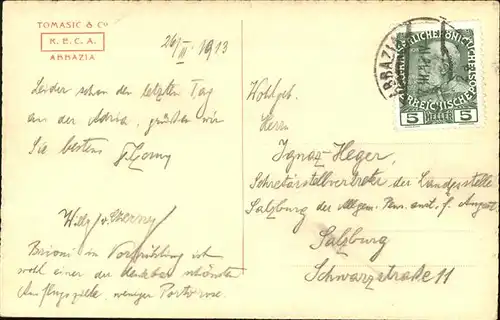 TOMASIC & Co
K. E. C. A.
ABBAZIA
26/III. 1913
Leider schon der letzten Tag
an der Adria, grüßen wir
Sie bestens
Willy v.
Brioni im Vorfrühling ist
wohl einer der denkbar schönsten
Ausflugsziele, weniger Portorose.
Wohlgeb.
Herrn
Ignaz Heger,
Sekretärstellvertreter der Landesstelle
Salzburg der Allgem. Pens. anst. f. Angest.
Salzburg
Schwarzstraße 11
ABBAZIA
5 HELLER 5